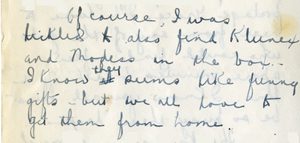 Of course, I was
tickled to also find Kleenex
and Modess in the box.
I know they seems like funny
gifts but we all love to
get them from home.